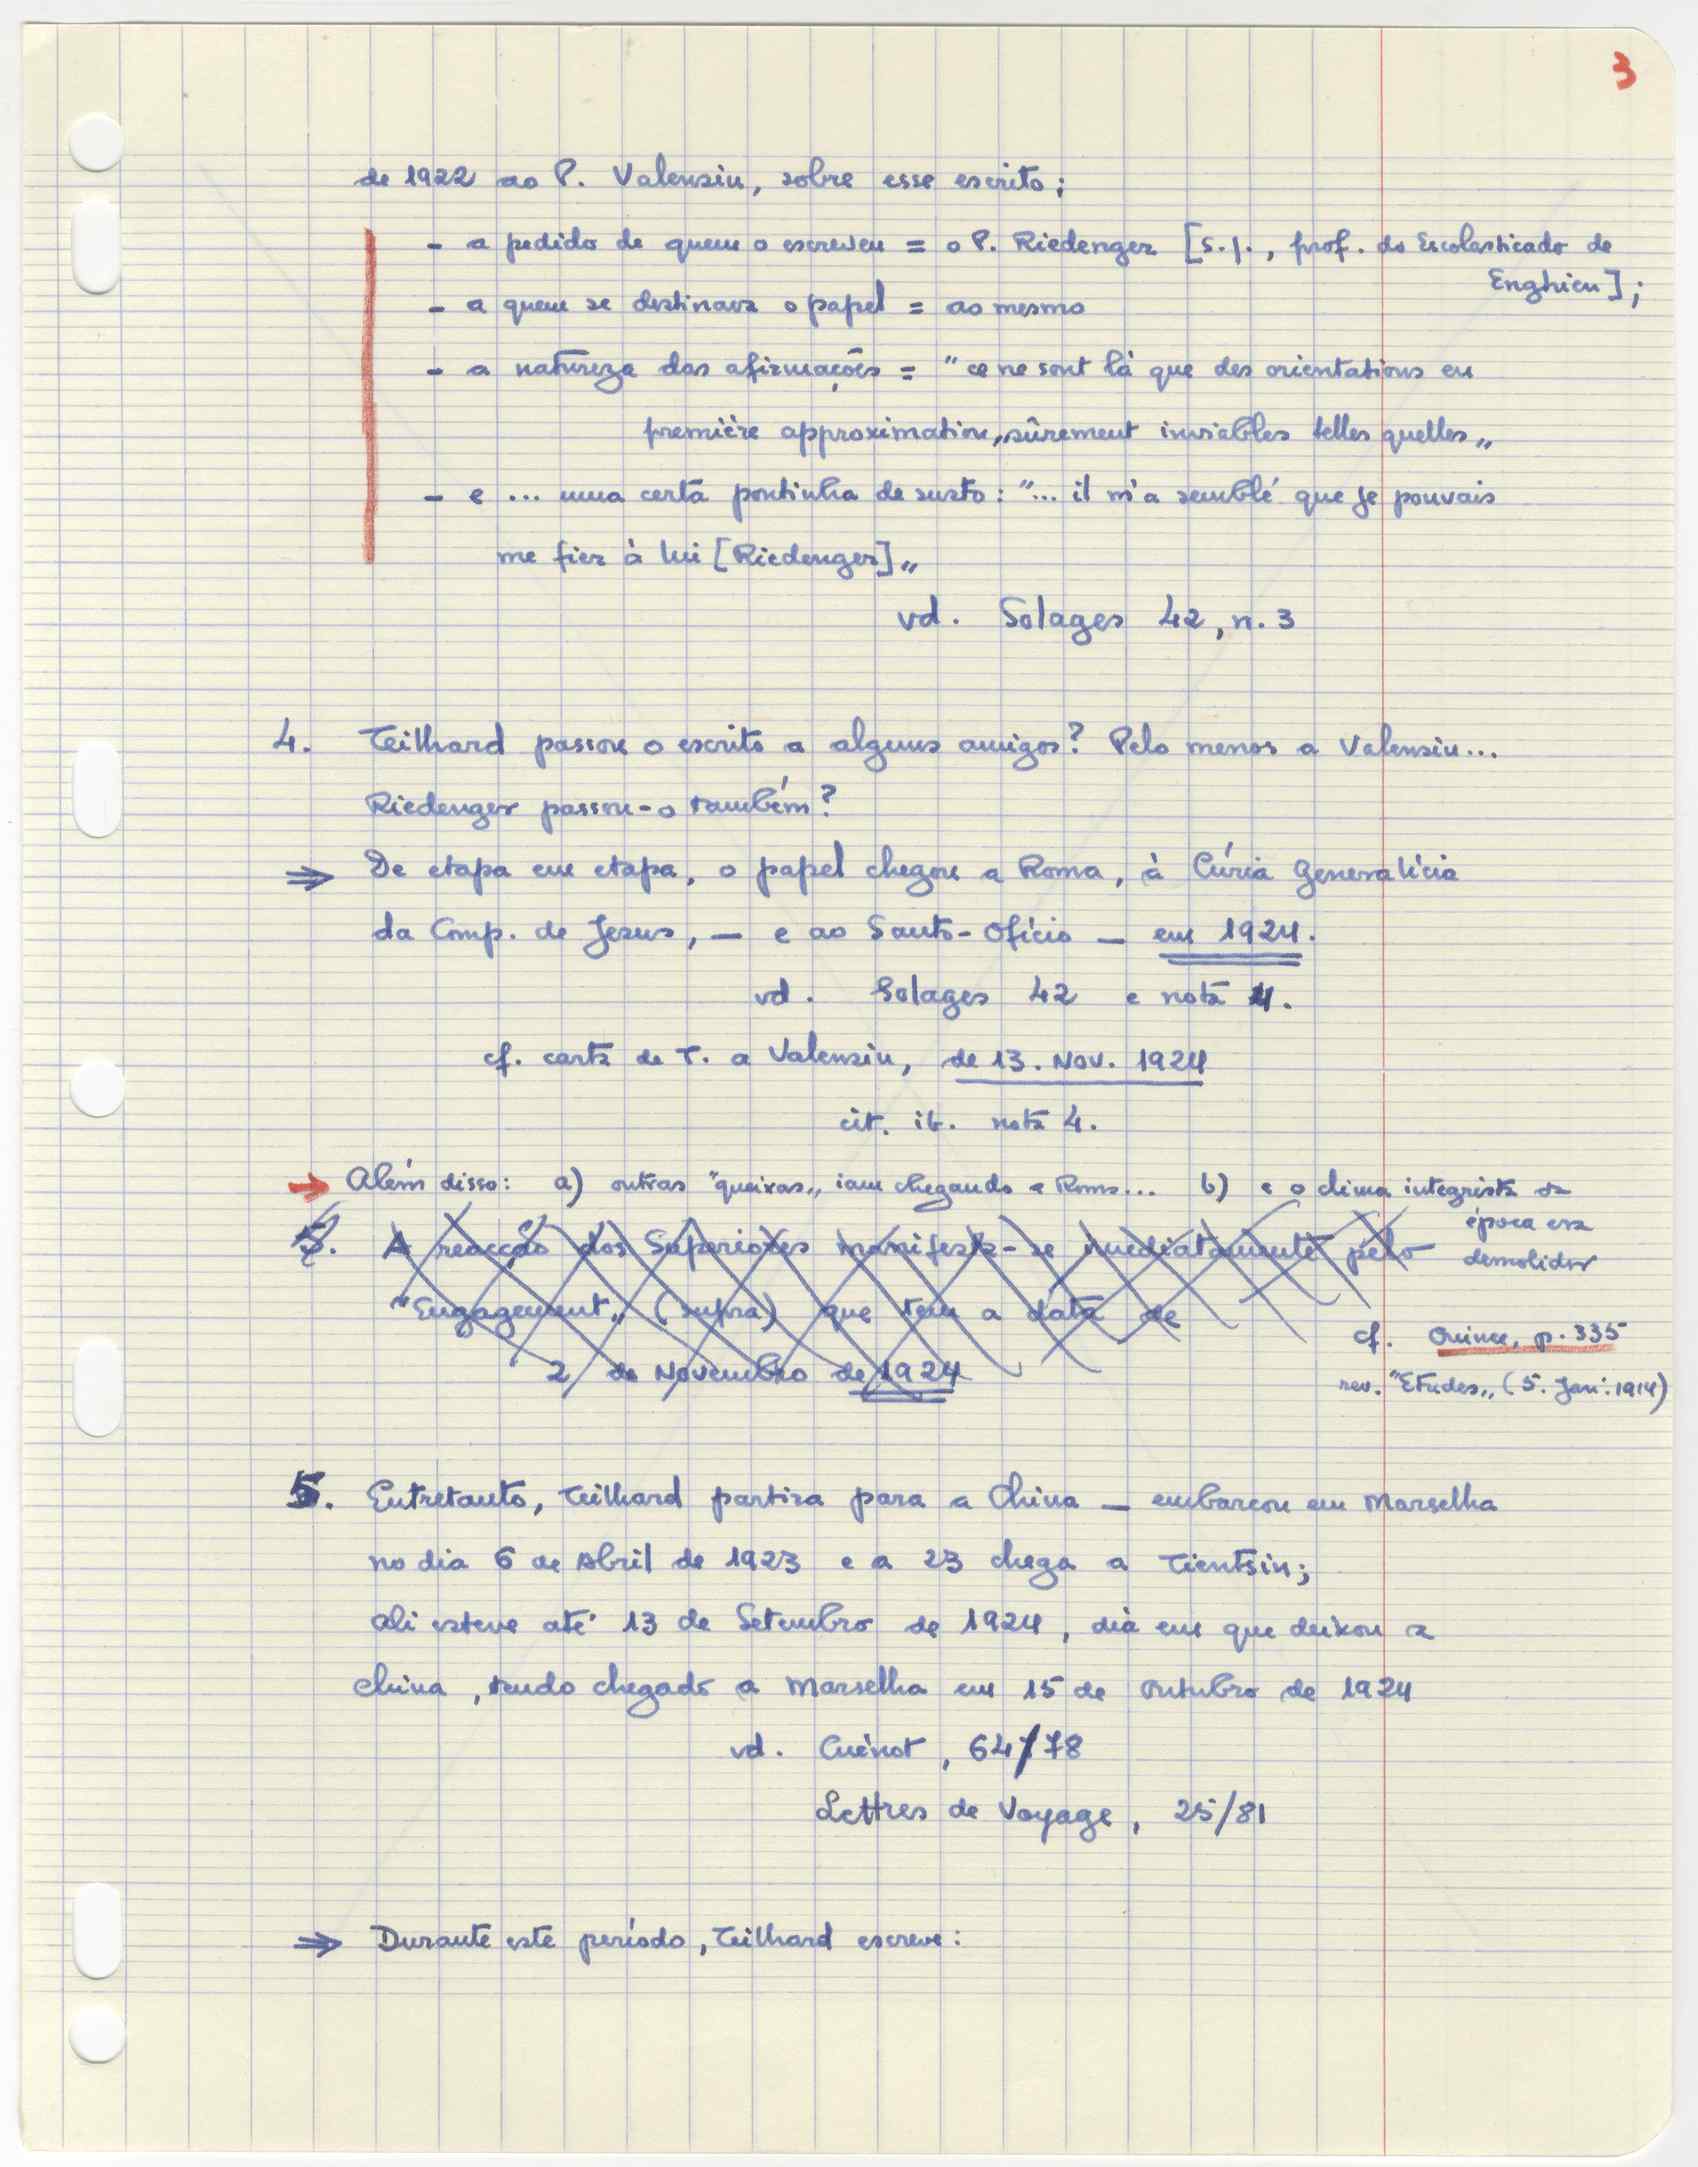 3
de 1922 ao P. Valensin, sobre esse escrito;
- a pedido de quem o escreveu = o P. Riedenger [S.J., prof. do Escolasticado de
Enghien];
- a quem se destinava o papel = ao mesmo
- a natureza das afirmações = "ce ne sont là que des orientations en
première approximation, sûrement inviables telles quelles„
- e ... uma certa pontinha de susto: "... il m'a semblé que je pouvais
me fier à lui [Riedenger]„
vd. Solages 42, n. 3
4. Teilhard passou o escrito a alguns amigos? Pelo menos a Valensin...
Riedenger passou-o também?
⇒ De etapa em etapa, o papel chegou a Roma, à Cúria Generalícia
da Comp. de Jesus, — e ao Santo-Ofício — em 1924.
vd. Solages 42 e nota 4.
cf. carta de T. a Valensin, de 13. Nov. 1924
cit. ib. nota 4.
→ Além disso: a) outras "queixas„ iam chegando a Roma... b) e o clima integrista da
época era
demolidor
5. A reacção dos Superiores manifesta-se imediatamente pelo
"Engagement„ (supra) que tem a data de
2 de Novembro de 1924
cf. Ouince, p. 335
rev. "Etudes„ (5. Jan. 1914)
5. Entretanto, Teilhard partira para a China — embarcou em Marselha
no dia 6 de Abril de 1923 e a 23 chega a Tientsin;
ali esteve até 13 de Setembro de 1924, dia em que deixou a
China, tendo chegado a Marselha em 15 de Outubro de 1924
vd. Cuénot, 64/78
Lettres de Voyage, 25/81
⇒ Durante este período, Teilhard escreve: